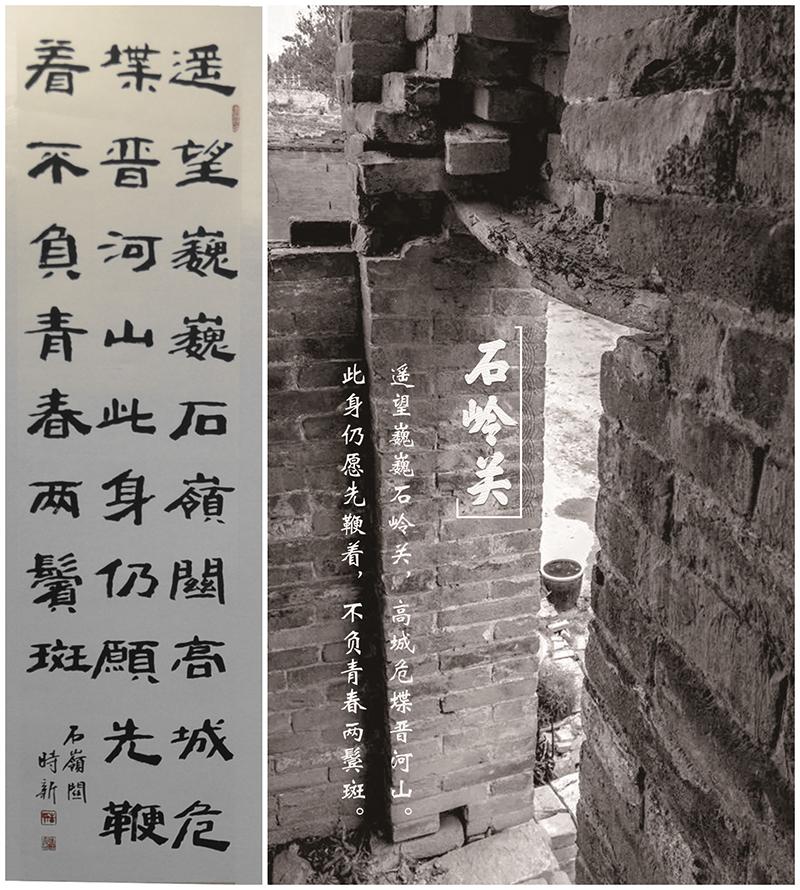 遥望巍巍石嶺關高城危
堞晋河山此身仍願先鞭
着不負青春两鬢斑
石嶺關
時新
石岭关
遥望巍巍石岭关，高城危堞晋河山。
此身仍愿先鞭着，不负青春两鬓斑。